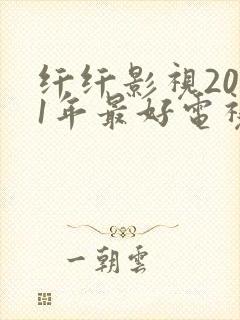 纤纤影視20
1年最好電視
一朝雲